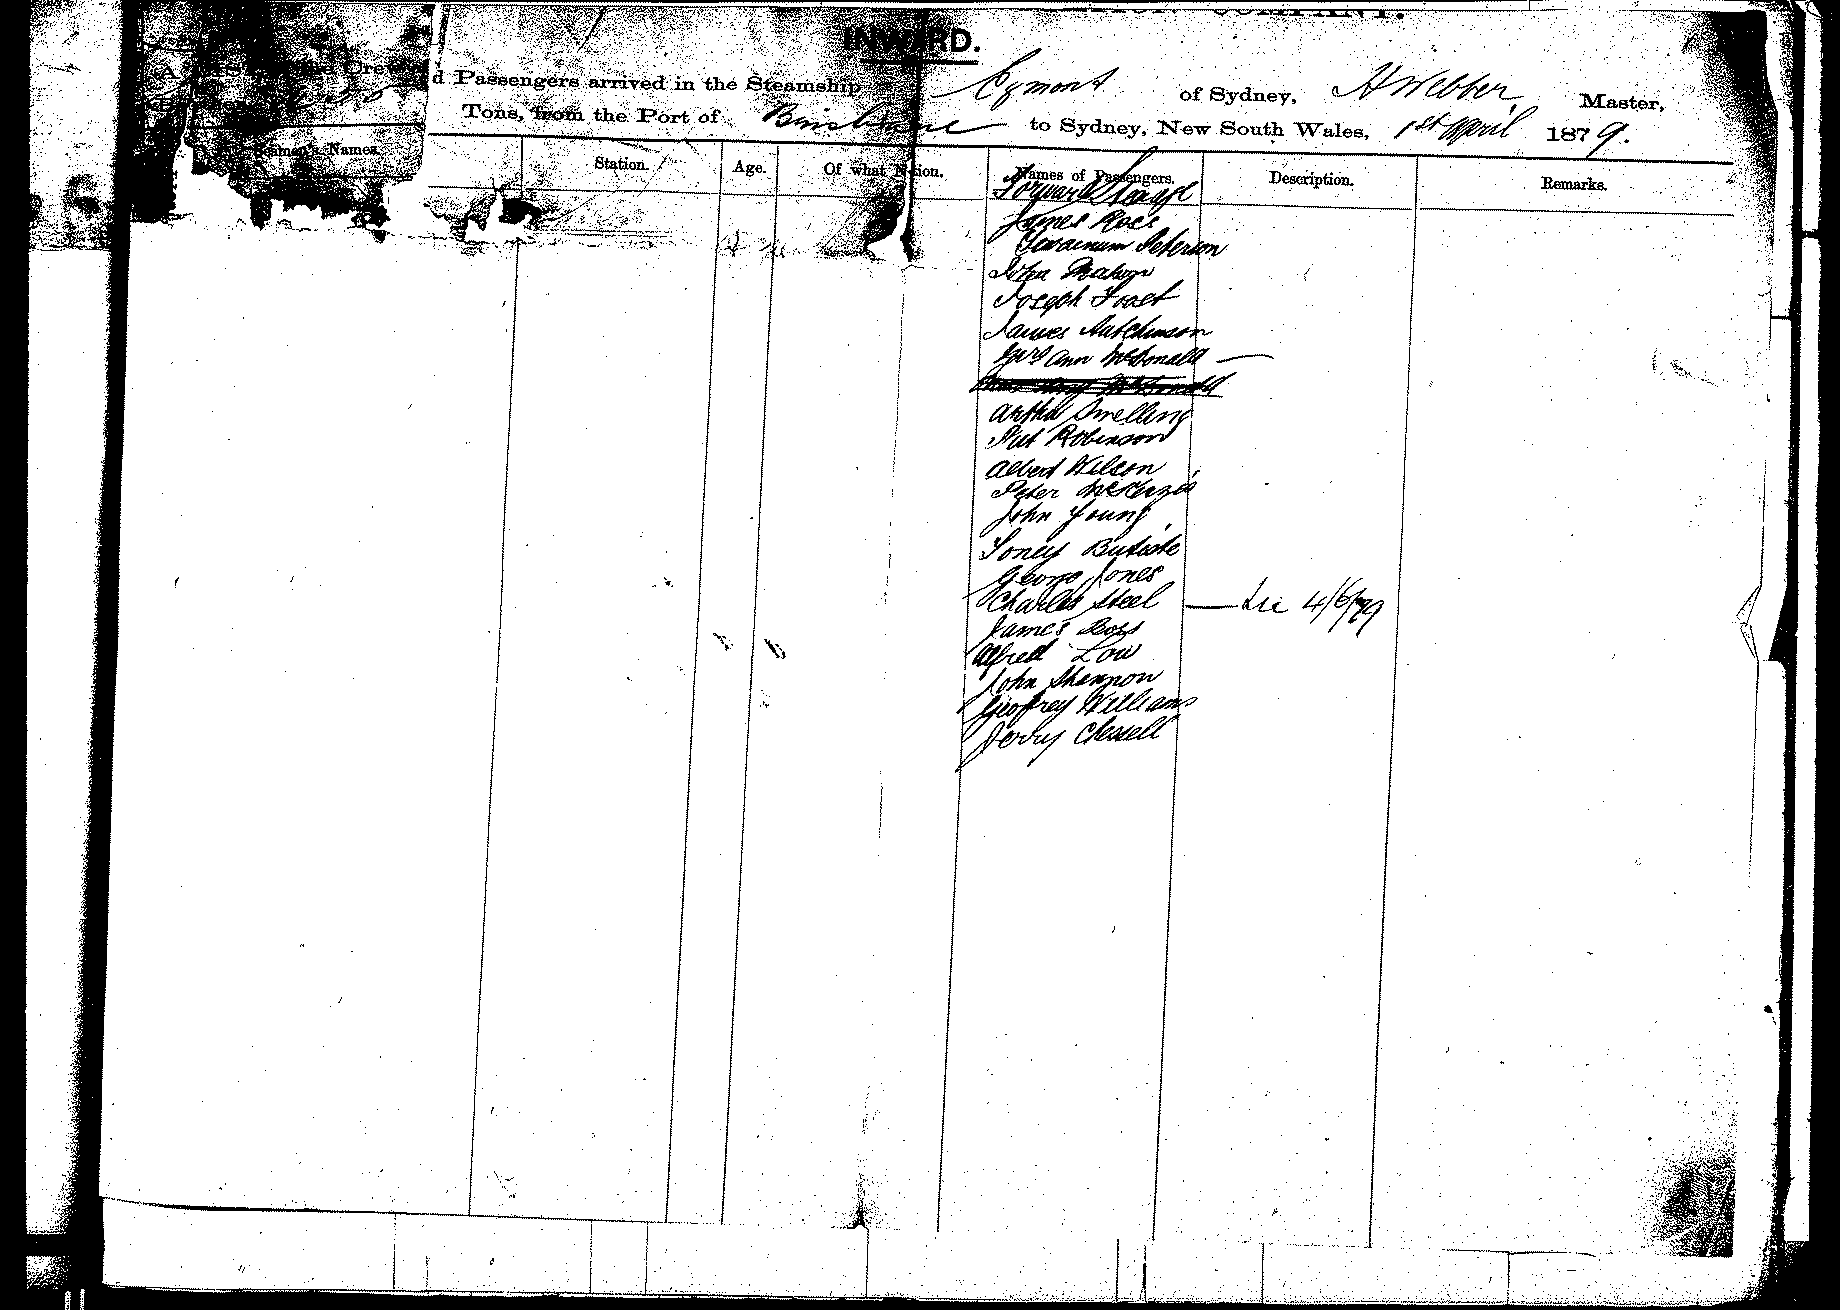 COMPANY.
INWARD.
d Passengers arrived in the Steamship Egmont of Sydney, H Webber Master,
Tons, from the Port of Brisbane to Sydney, New South Wales, 1st April 1879.
Names. Station. Age. Of what Nation. Names of Passengers. Description. Remarks.
James Ross
Peterson
John Mahon
Joseph
James Hutchinson
Ann McDonald
Arthur Snelling
Pat Robinson
Albert Wilson
Peter McKenzie
John Young
Toney Batiste
George Jones
Charles Steel — Lic 4/6/79
James Ross
Alfred Low
John Shannon
Geoffrey Williams
Jerry